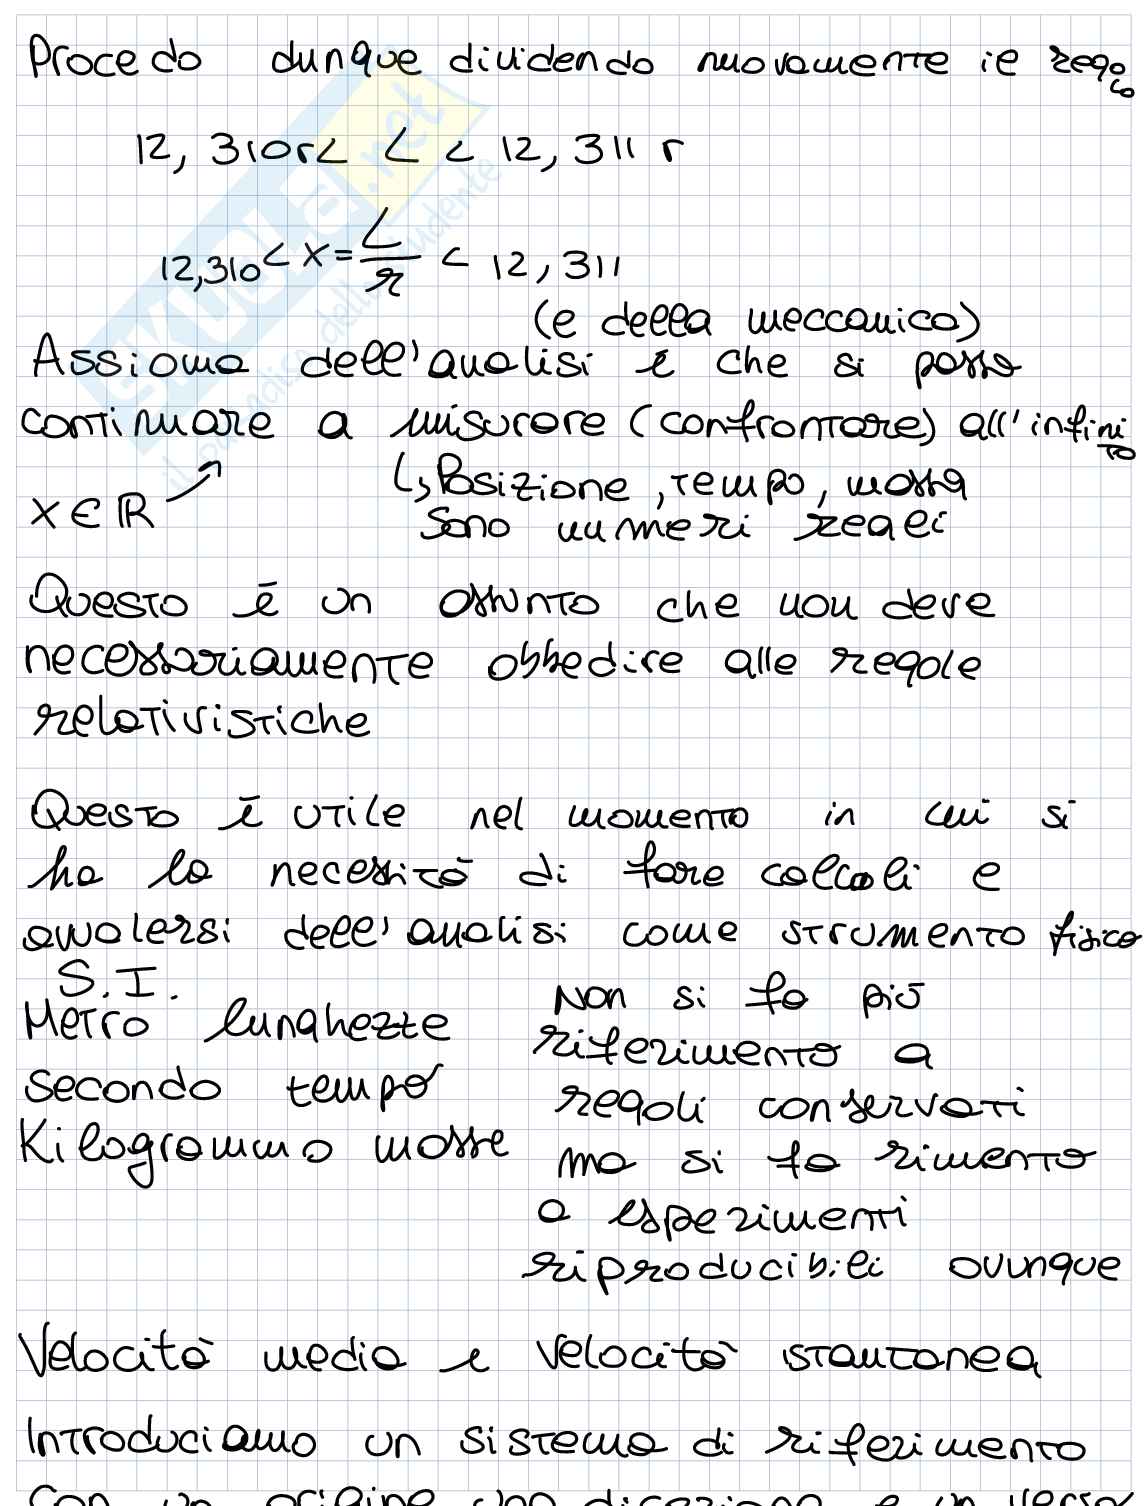 Procedo dunque dividendo nuovamente il regolo
12, 310 r < L < 12, 311 r
12,310 < x = L/r < 12, 311
(e della meccanica)
Assioma dell'analisi è che si possa
continuare a misurare (confrontare) all'infinito
x ∈ ℝ ↳ Posizione, tempo, massa
sono numeri reali
Questo è un assunto che non deve
necessariamente obbedire alle regole
relativistiche
Questo è utile nel momento in cui si
ha la necessità di fare calcoli e
avvalersi dell'analisi come strumento fisico
S.I.
Metro lunghezze
secondo tempo
Kilogrammo masse
Non si fa più
riferimento a
regoli conservati
ma si fa rimento
a esperimenti
riproducibili ovunque
Velocità media e velocità istantanea
Introduciamo un sistema di riferimento
con un origine una direzione e un verso
SKUOLA.net
il paradiso dello studente